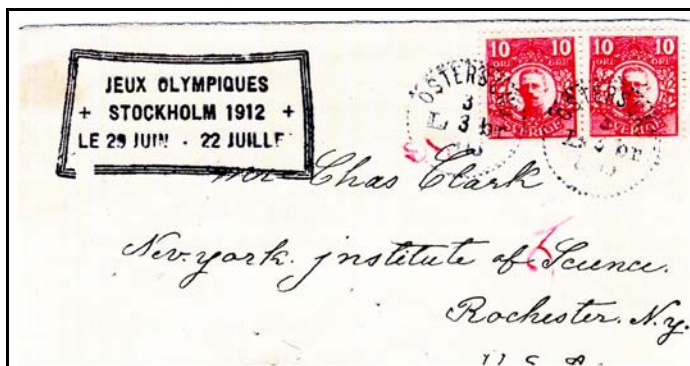 JEUX OLYMPIQUES
+ STOCKHOLM 1912 +
LE 29 JUIN - 22 JUILLE
10 10
ORE ORE
SVERIGE
10 10
ORE ORE
SVERIGE
ÖSTERS
3
3
ÖSTERS
Mr Chas Clark
New.york. institute of Science.
Rochester. N.y.
U.S.A.